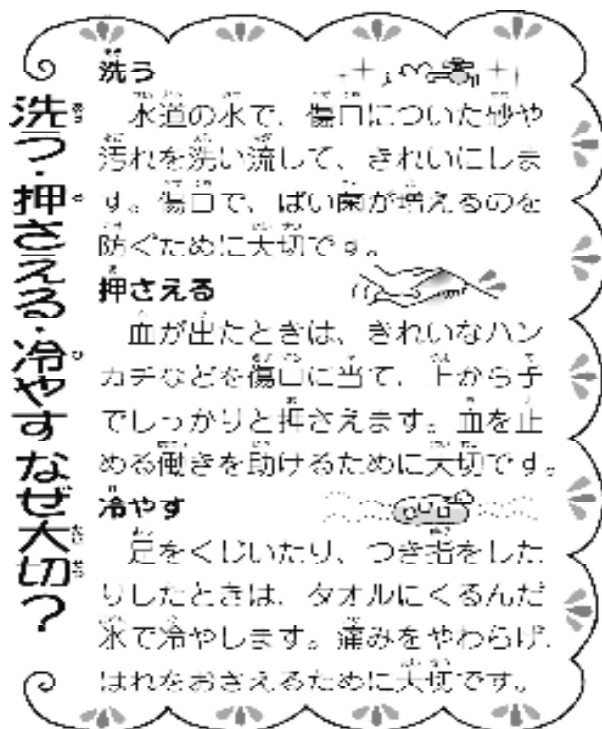 洗う・押さえる・冷やす なぜ大切？
洗う
水道の水で、傷口についた砂や
汚れを洗い流して、きれいにしま
す。傷口で、ばい菌が増えるのを
防ぐために大切です。
押さえる
血が出たときは、きれいなハン
カチなどを傷口に当て、上から手
でしっかりと押さえます。血を止
める働きを助けるために大切です。
冷やす
足をくじいたり、つき指をした
りしたときは、タオルにくるんだ
氷で冷やします。痛みをやわらげ、
はれをおさえるために大切です。